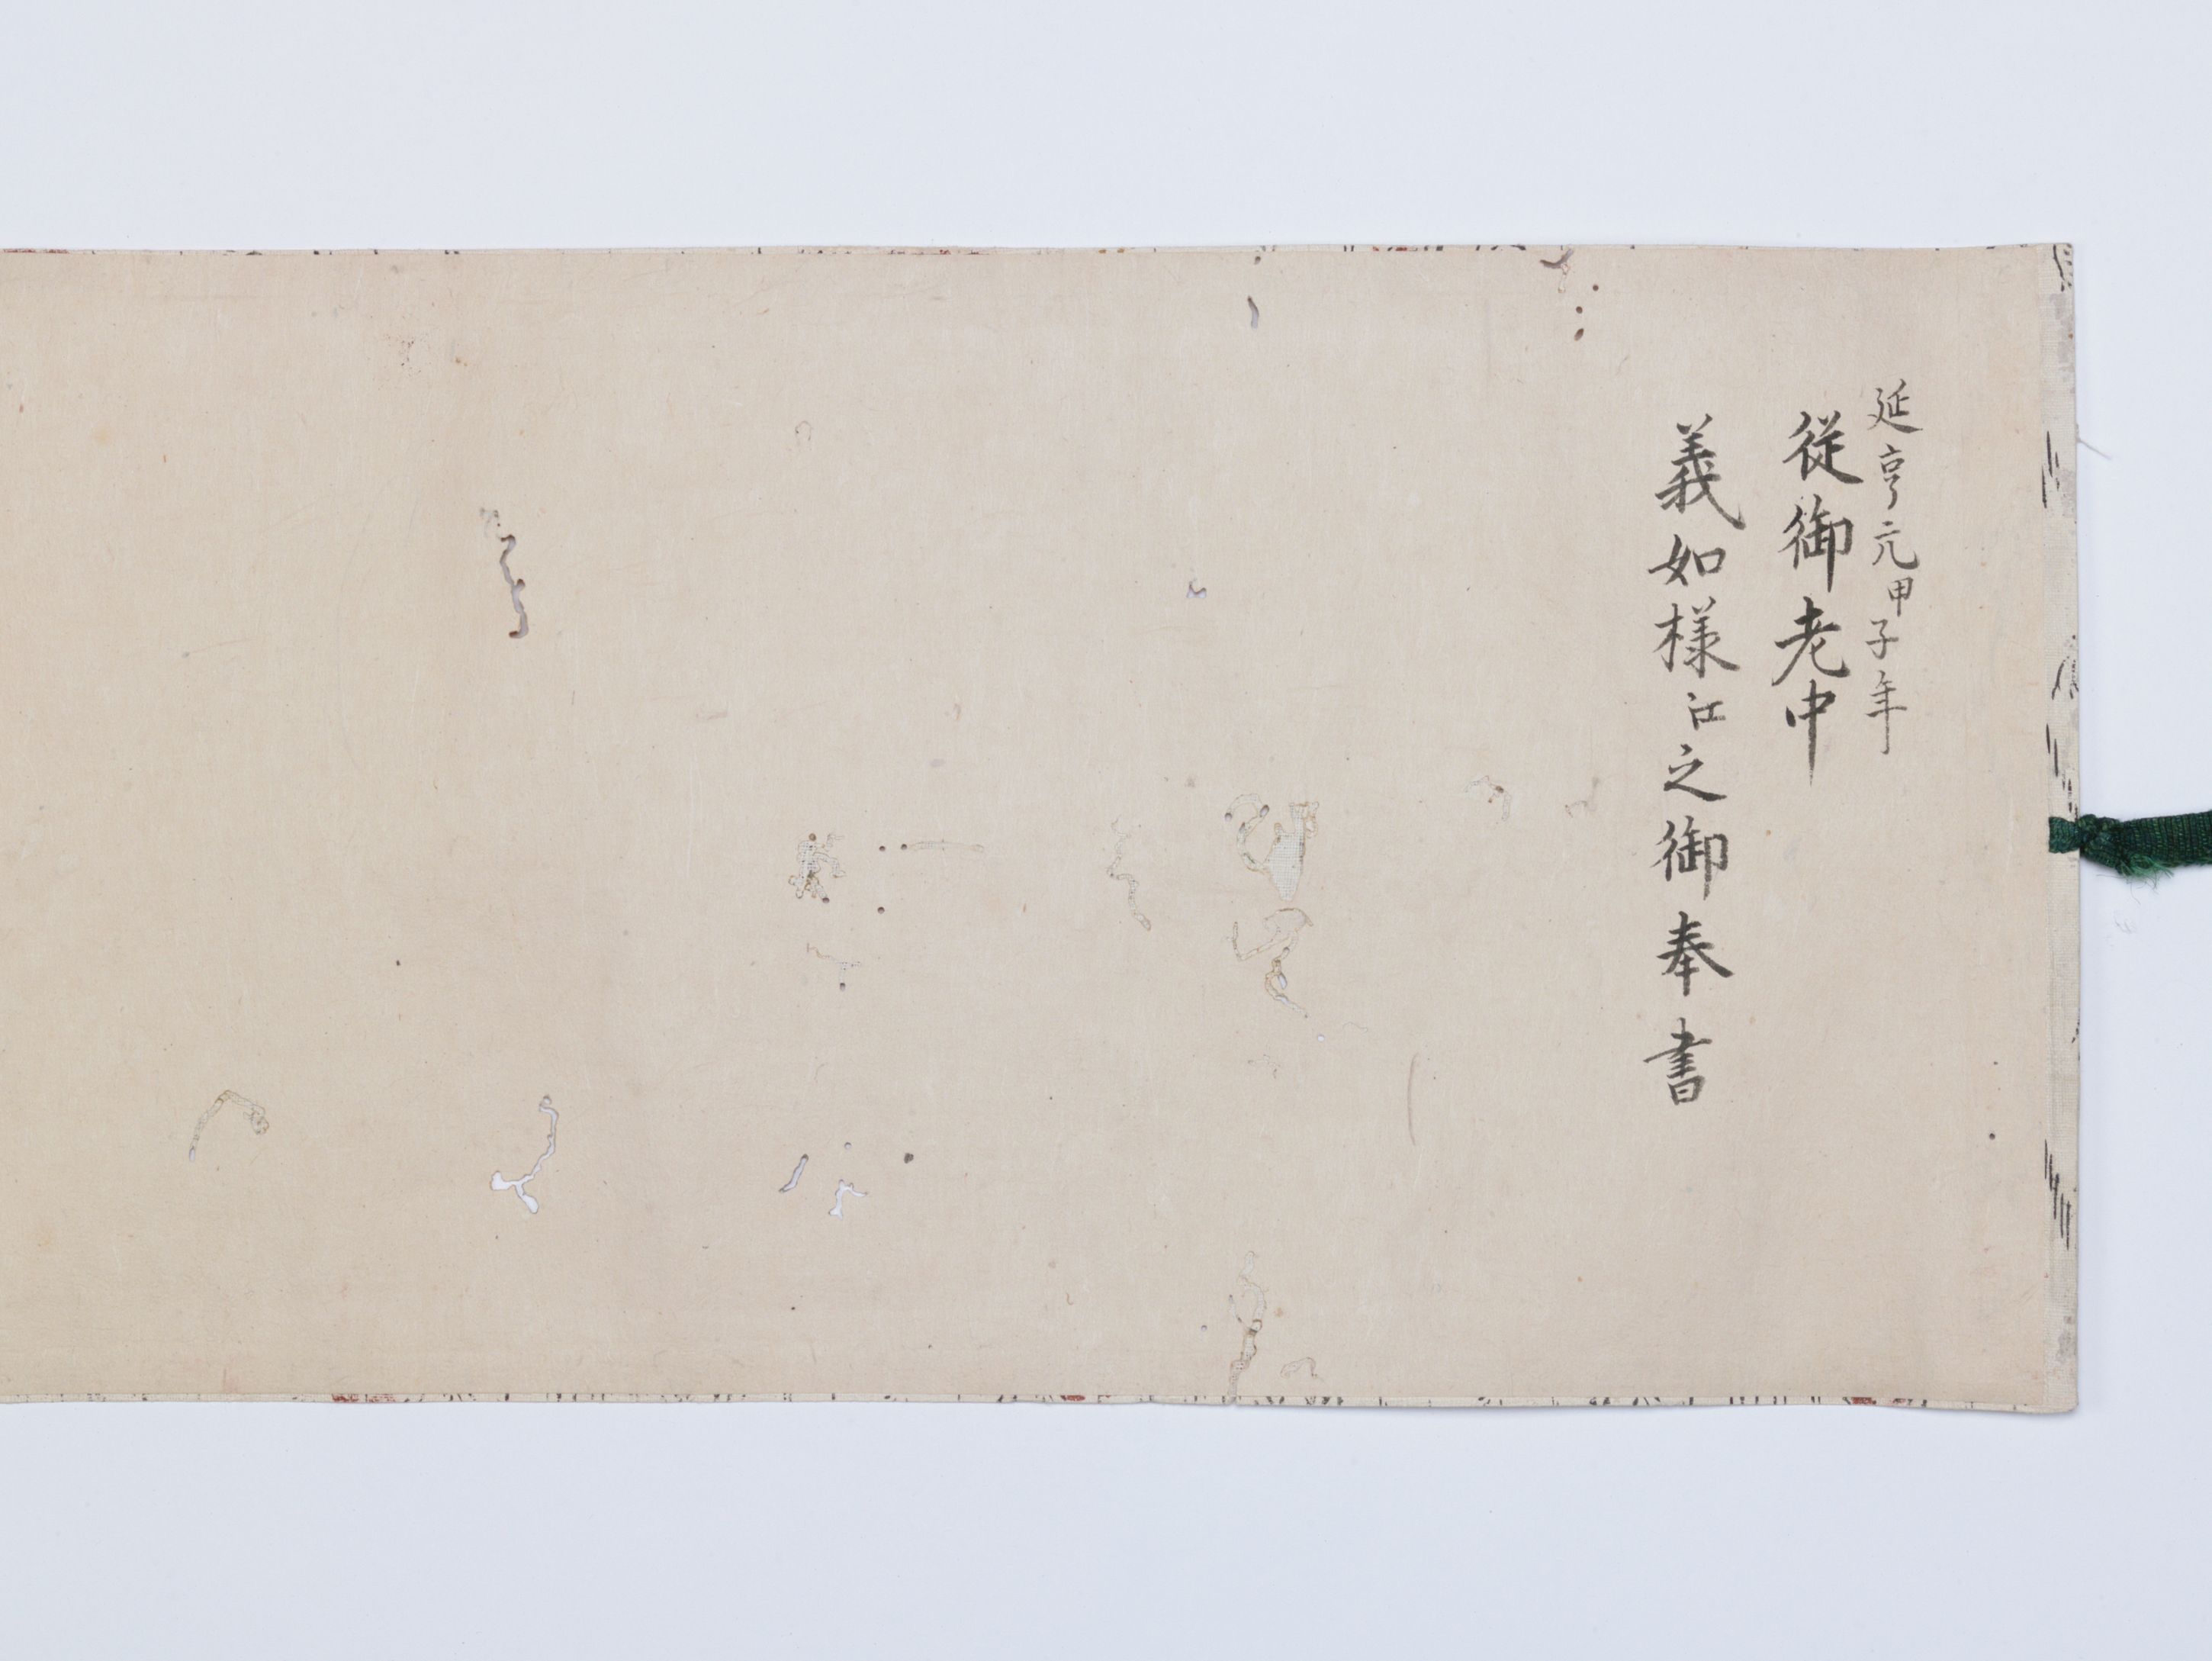 延亨元甲子年
従御老中
義如様江之御奉書